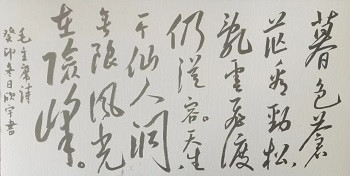 暮色蒼
茫看勁松,
亂雲飛渡
仍從容。天生
一个仙人洞
無限風光
在險峰。
毛主席詩
癸卯冬日欣宇書